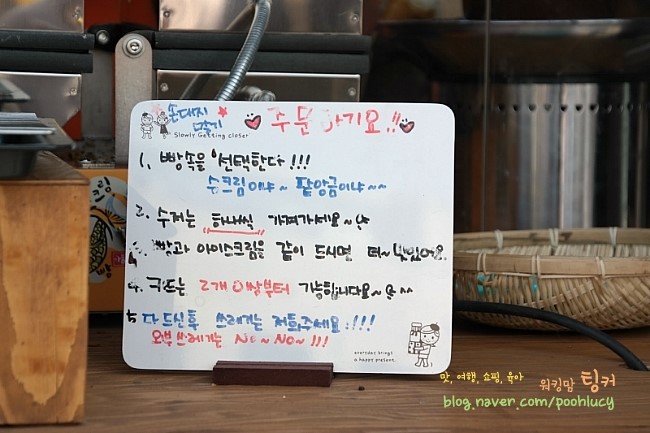 주문하기요.!!
Slowly Getting closer
1. 빵속을 선택한다!!!
슈크림이냐~ 팥앙금이냐~~
2. 수저는 하나씩 가져가세요~^^
빵과 아이스크림을 같이 드시면 더~맛있어요.
4. 쿠폰는 2개이상부터 가능합니다요~^^
5 다 드신후 쓰레기는 저를주세요.!!!
외부쓰레기는 No~No~!!!
everyday brings
a happy present.
맛, 여행, 쇼핑, 육아 워킹맘 팅커
blog.naver.com/poohlucy